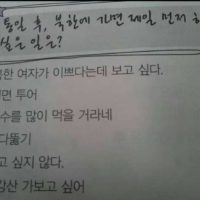 통일 후, 북한에 가면 제일 먼저 하
싶은 일은?
한 여자가 이쁘다는데 보고 싶다.
면 투어
수를 많이 먹을 거라네
다뚫기
고 싶지 않다.
강산 가보고 싶어